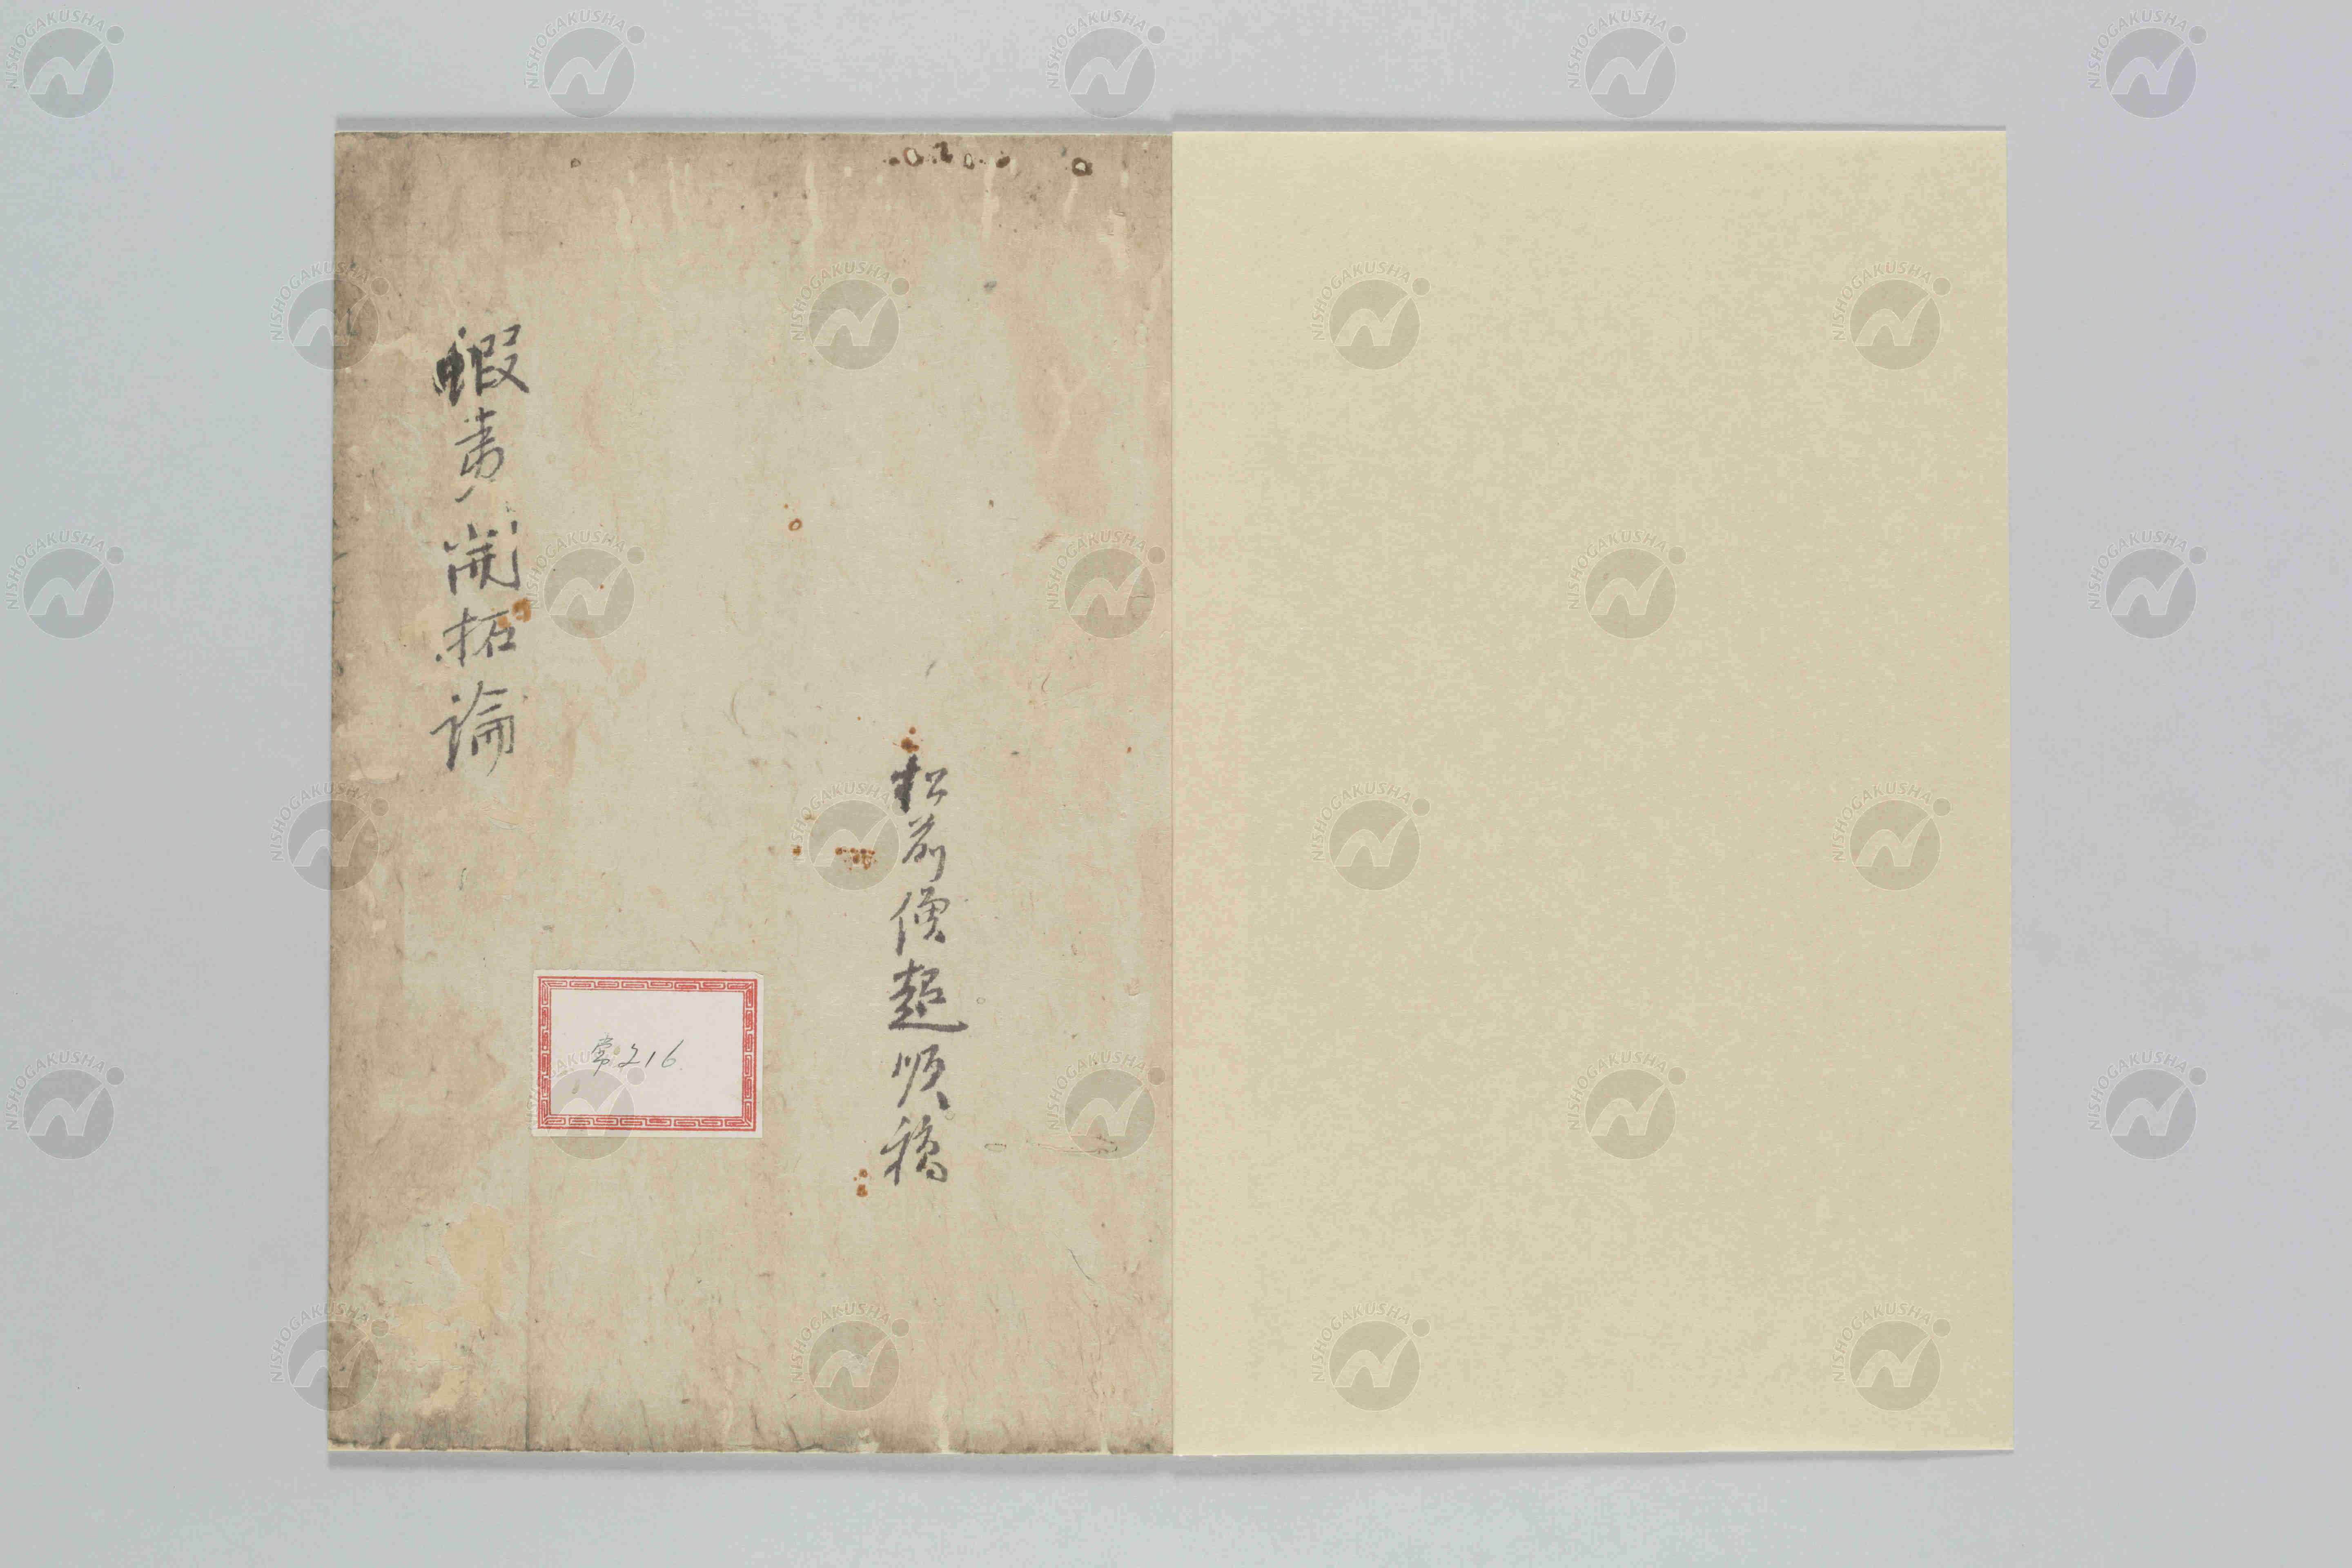 松前僧超順稿
蝦夷開拓論
常216
NISHOGAKUSHA